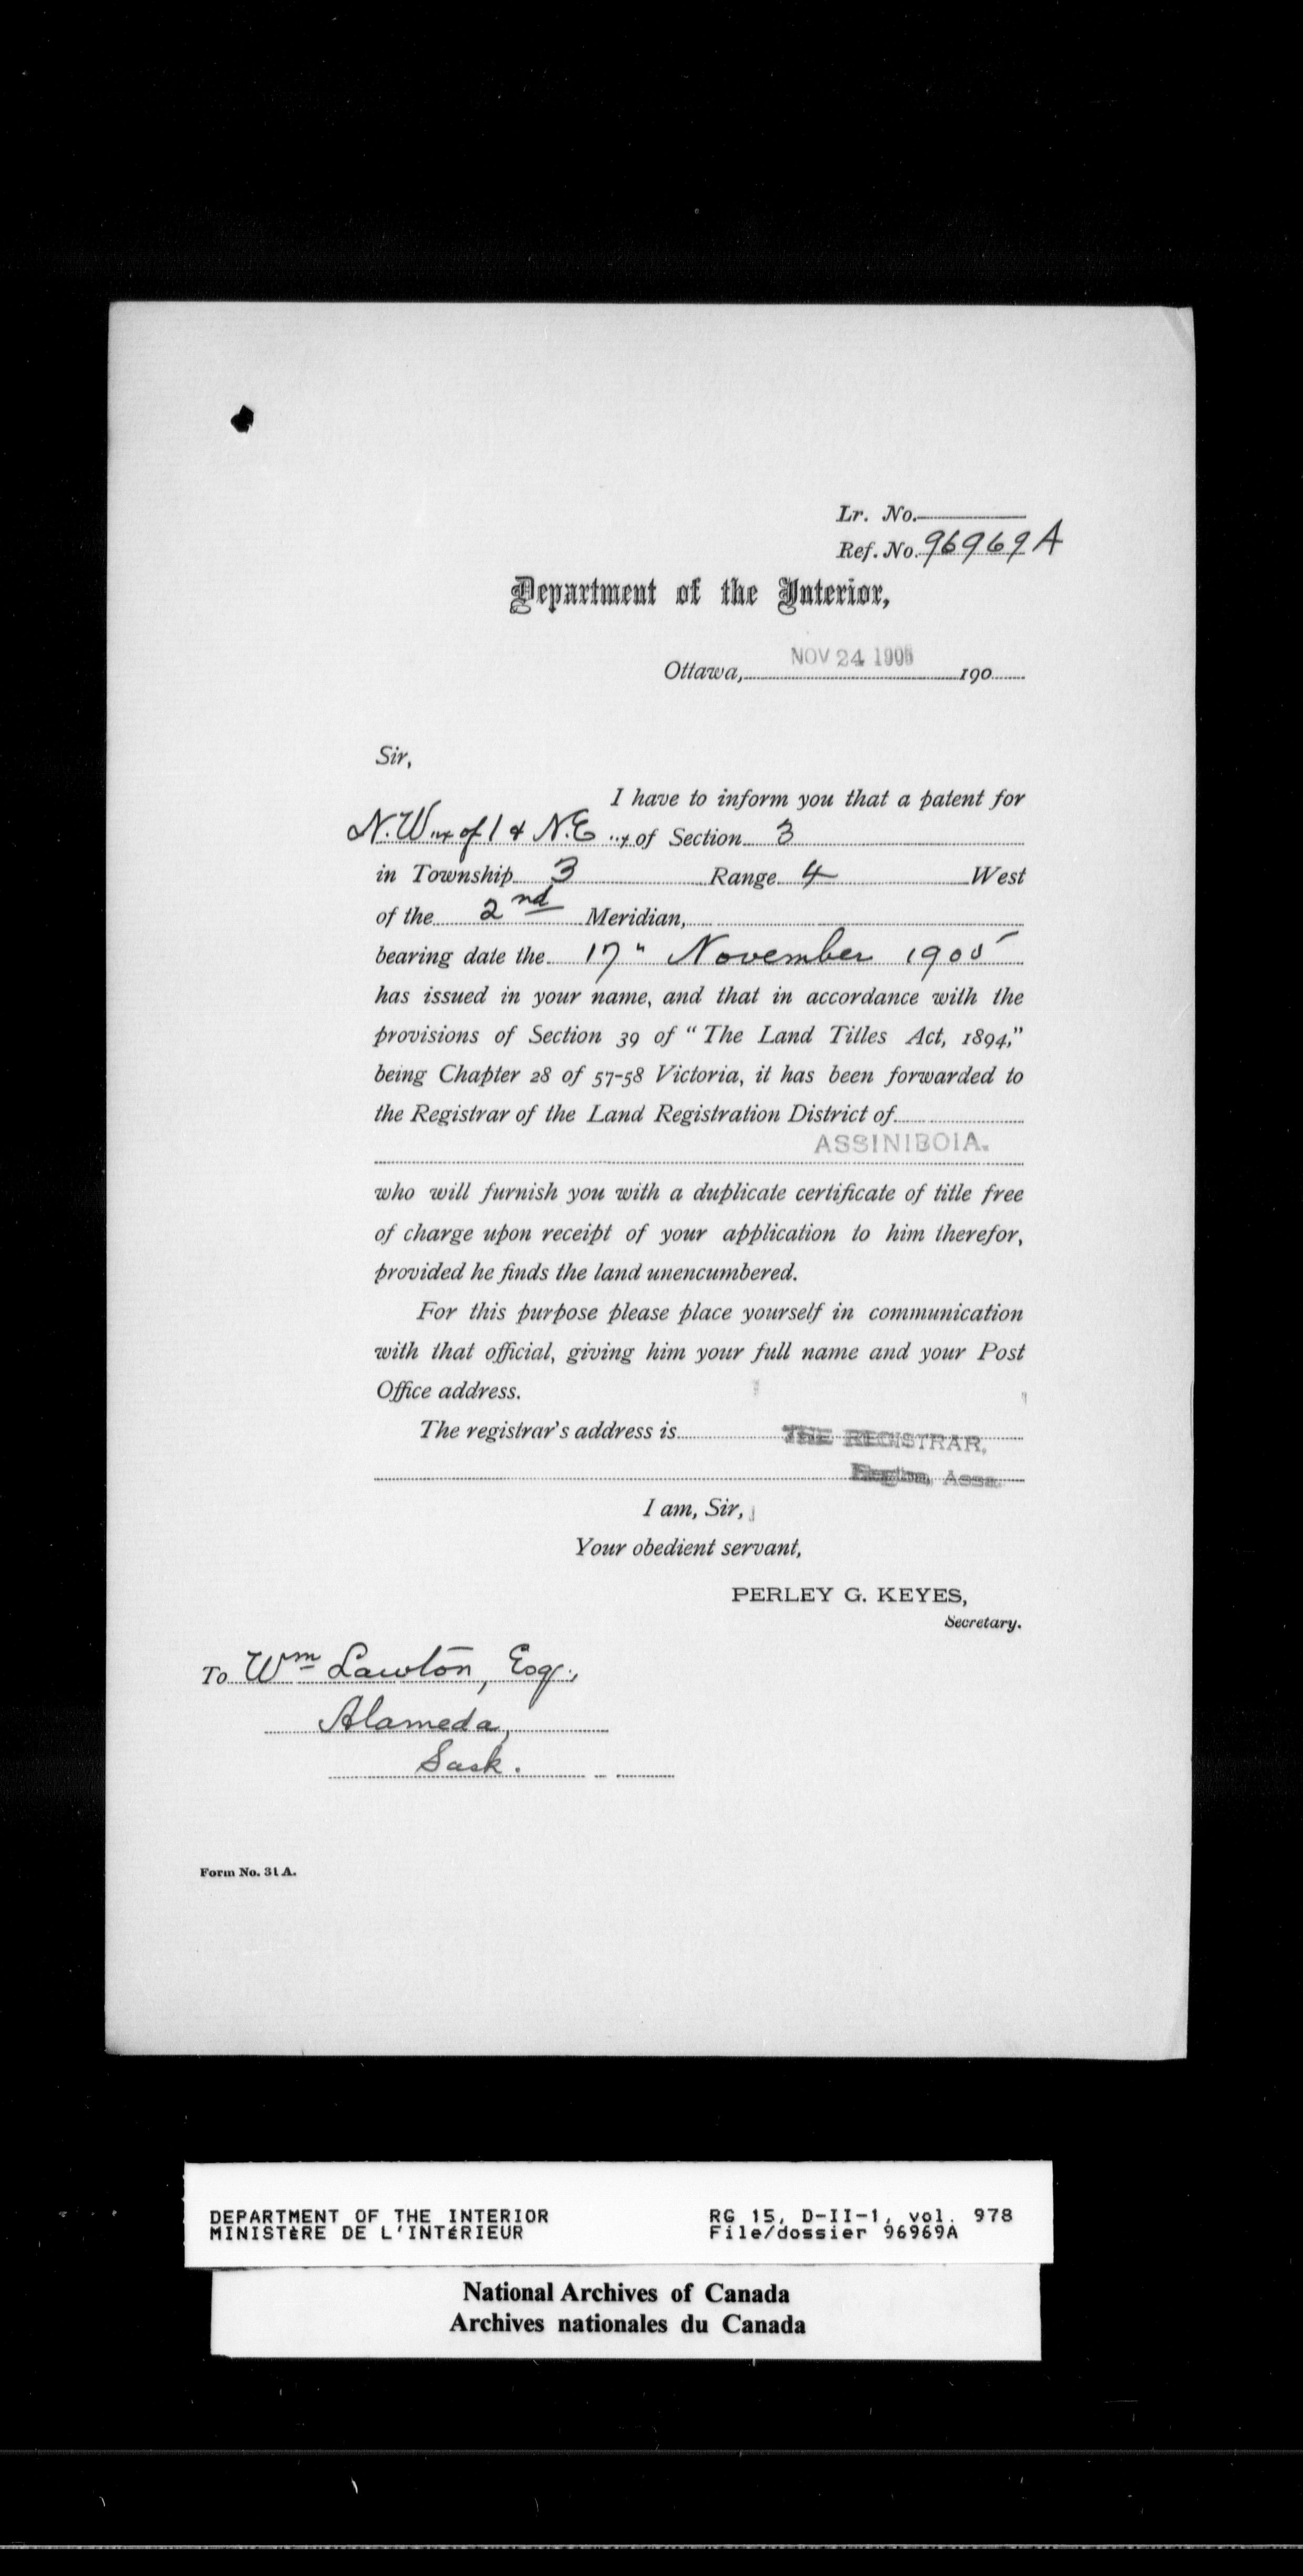 Lr. No.
Ref. No. 96969 A
Department of the Interior,
NOV 24 1905
Ottawa, 190
Sir,
I have to inform you that a patent for
N.W. ¼ of 1 & N.E. ¼ of Section 3
in Township 3 Range 4 West
of the 2nd Meridian,
bearing date the 17" November 1905
has issued in your name, and that in accordance with the
provisions of Section 39 of "The Land Titles Act, 1894,"
being Chapter 28 of 57-58 Victoria, it has been forwarded to
the Registrar of the Land Registration District of
ASSINIBOIA.
who will furnish you with a duplicate certificate of title free
of charge upon receipt of your application to him therefor,
provided he finds the land unencumbered.
For this purpose please place yourself in communication
with that official, giving him your full name and your Post
Office address.
The registrar's address is THE REGISTRAR,
Regina, Assa.
I am, Sir,
Your obedient servant,
PERLEY G. KEYES,
Secretary.
To Wm Lawton, Esq.,
Alameda,
Sask.
Form No. 31 A.
DEPARTMENT OF THE INTERIOR RG 15, D-II-1, vol. 978
MINISTÈRE DE L'INTÉRIEUR File/dossier 96969A
National Archives of Canada
Archives nationales du Canada